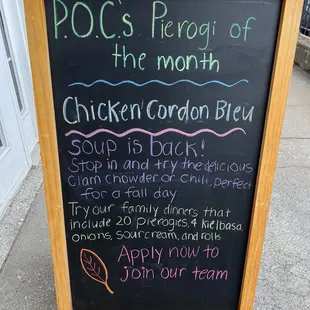 P.O.C.'s Pierogi of
the month
Chicken Cordon Bleu
SOUP IS BACK!
Stop in and try the delicious
Clam Chowder or Chili, perfect
for a fall day
Try our family dinners that
include 20 pierogies, 4 kielbasa,
onions, sour cream, and rolls
Apply now to
join our team